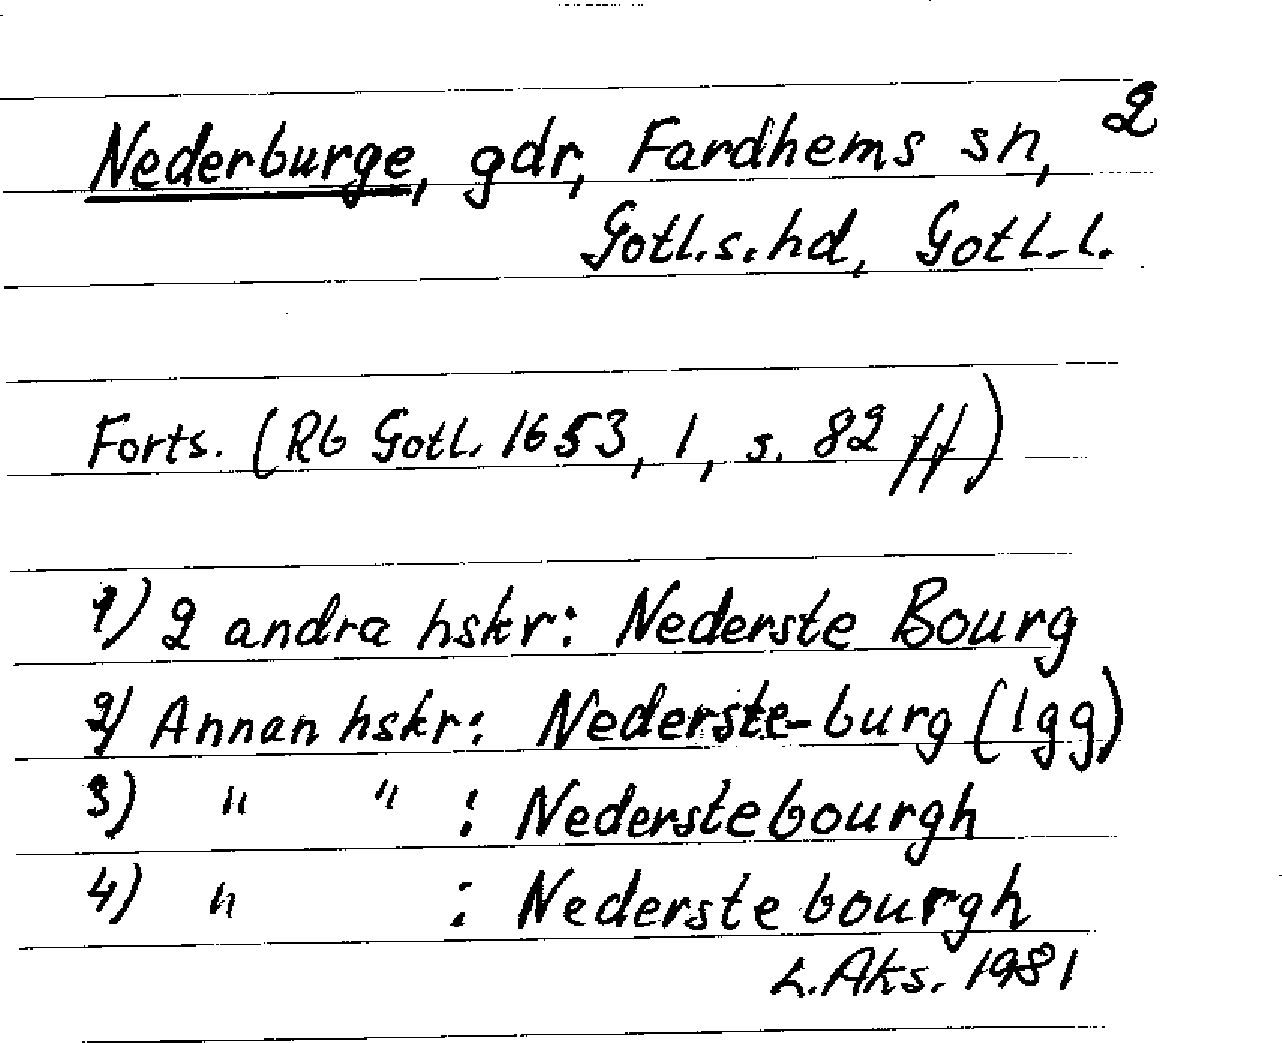 Nederburge, gdr, Fardhems sn, 2
Gotl.s.hd, Gotl.l.
Forts. (Rb Gotl. 1653, 1, s. 82 ff)
1) 2 andra hskr: Nederste Bourg
2) Annan hskr: Nederste-burg (lgg)
3) " " : Nederstebourgh
4) " : Nederste bourgh
L.Aks. 1981